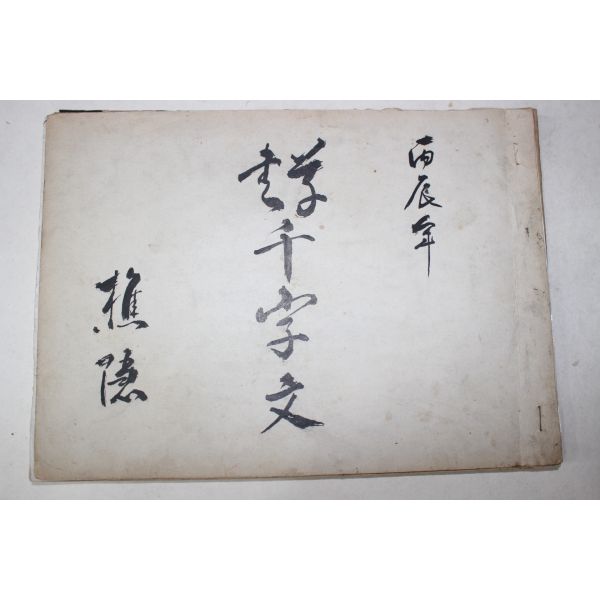 丙辰年
草書千字文
樵隱